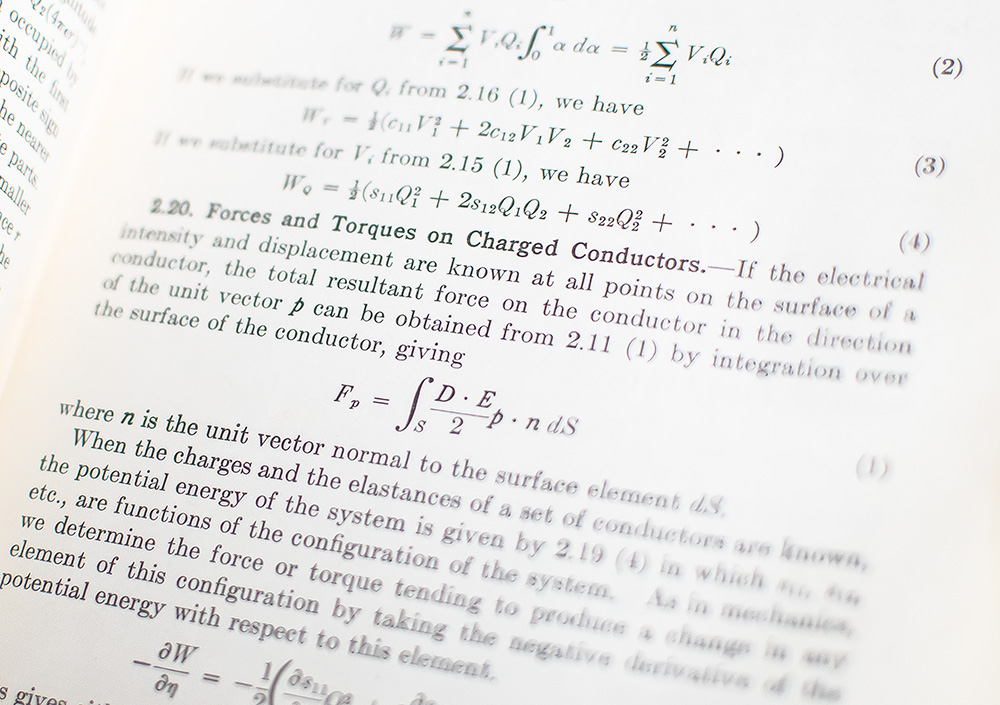 Q₂(4πσ)⁻
occupied by
with the first
posite sign
he nearer
e parts.
maller
ace r
he
W = ∑ᵢ₌₁ⁿ VᵢQᵢ ∫₀¹ α dα = ½ ∑ᵢ₌₁ⁿ VᵢQᵢ (2)
If we substitute for Qᵢ from 2.16 (1), we have
Wᵥ = ½(c₁₁V₁² + 2c₁₂V₁V₂ + c₂₂V₂² + · · · ) (3)
If we substitute for Vᵢ from 2.15 (1), we have
W_Q = ½(s₁₁Q₁² + 2s₁₂Q₁Q₂ + s₂₂Q₂² + · · · ) (4)
2.20. Forces and Torques on Charged Conductors.—If the electrical
intensity and displacement are known at all points on the surface of a
conductor, the total resultant force on the conductor in the direction
of the unit vector p can be obtained from 2.11 (1) by integration over
the surface of the conductor, giving
Fₚ = ∫_S (D · E)/2 p · n dS (1)
where n is the unit vector normal to the surface element dS.
When the charges and the elastances of a set of conductors are known,
the potential energy of the system is given by 2.19 (4) in which s₁₁, s₁₂
etc., are functions of the configuration of the system. As in mechanics,
we determine the force or torque tending to produce a change in any
element of this configuration by taking the negative derivative of the
potential energy with respect to this element.
−∂W/∂η = −1/2(∂s₁₁
s gives